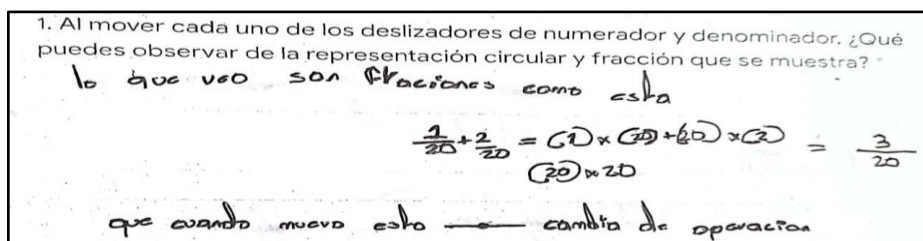 1. Al mover cada uno de los deslizadores de numerador y denominador. ¿Qué
puedes observar de la representación circular y fracción que se muestra?
lo que veo son fraciones como esta
1/20 + 2/20 = (1) x (20) + (20) x (2) / (20) x 20 = 3/20
que cuando muevo esto cambia de operacion